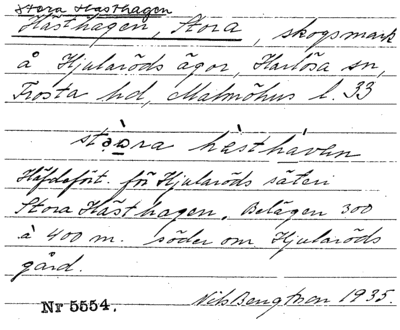 Stora Hästhagen
Hästhagen, Stora, skogsmark
å Hjularöds ägor, Harlösa sn,
Frosta hd, Malmöhus l. 33
hàsthàven
för Hjularöds säteri
Stora Hästhagen. Belägen 300
à 400 m. söder om Hjularöds
gård.
Nr 5554. Nils Bengtson 1935.